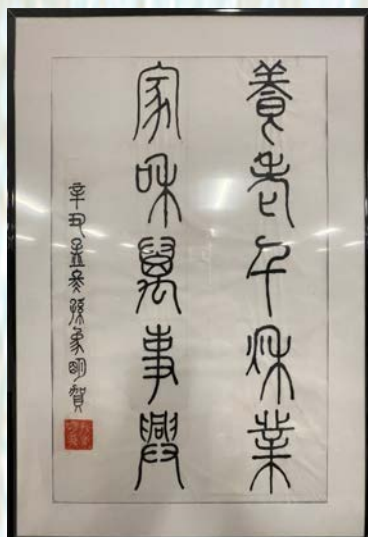 養老千秋業
家和萬事興
辛丑孟冬孫象明賀